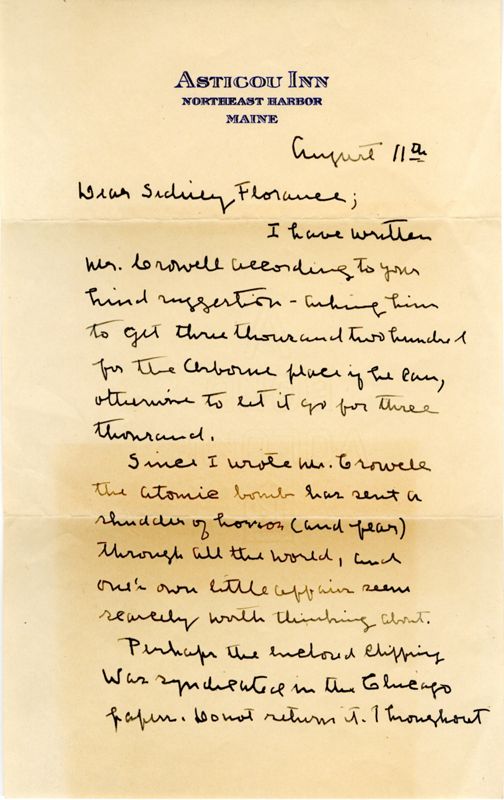 ASTICOU INN
NORTHEAST HARBOR
MAINE
August 11th
Dear Sidney Florance;
I have written
Mr. Crowell according to your
kind suggestion - asking him
to get three thousand two hundred
for the Cerborne place if he can,
otherwise to let it go for three
thousand.
Since I wrote Mr. Crowell
the atomic bomb has sent a
shudder of horror (and fear)
through all the world, and
one's own little affairs seem
scarcely worth thinking about.
Perhaps the enclosed clipping
was syndicated in the Chicago
paper. Do not return it. Throughout